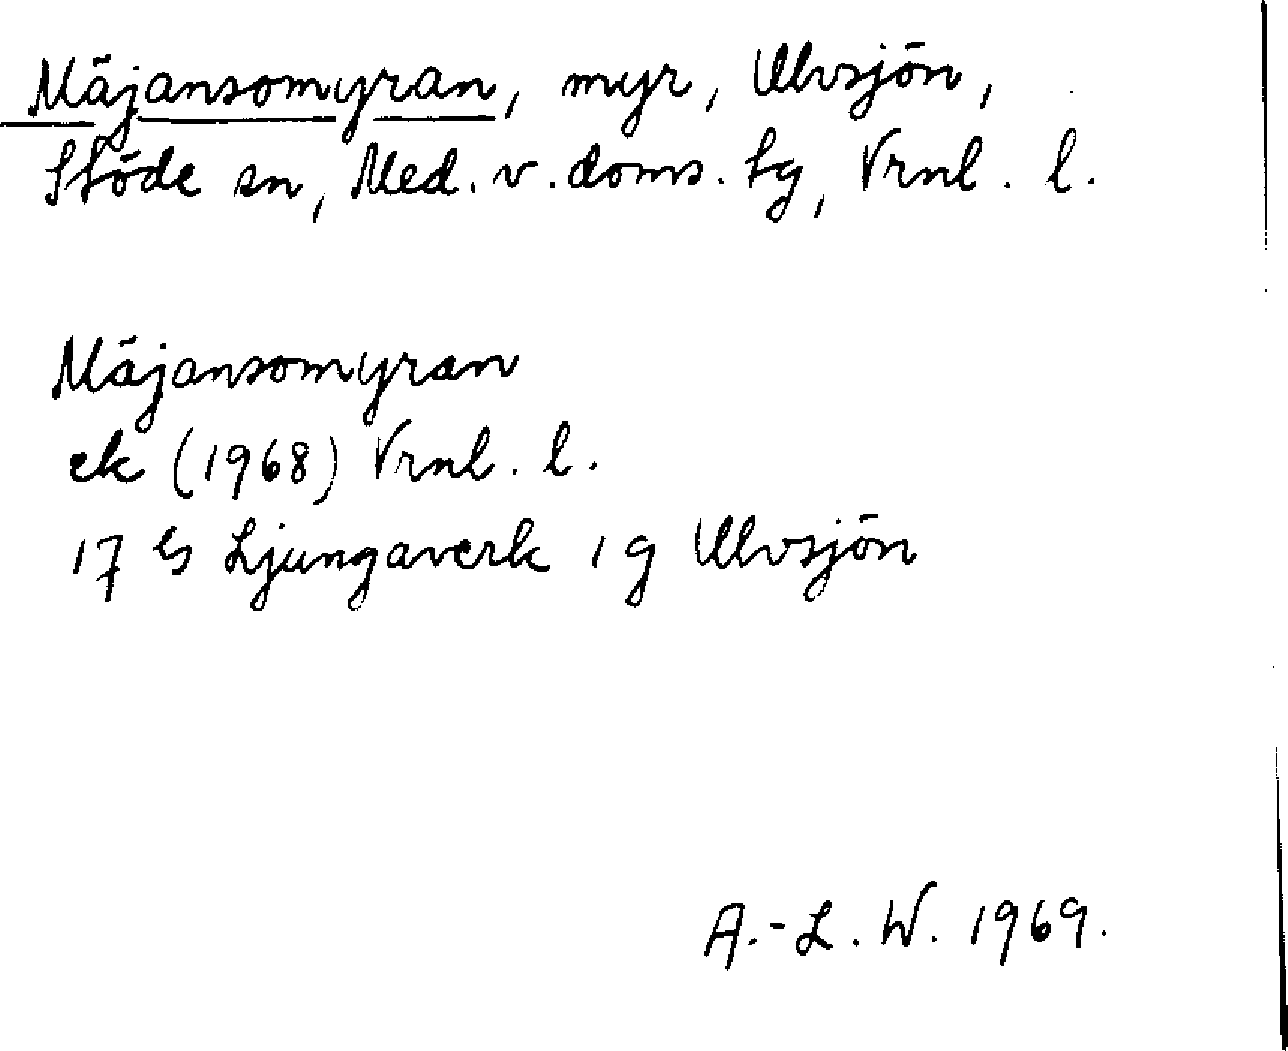 Mäjansomyran, myr, Ulvsjön,
Stöde sn, Med. v. doms. tg, Vrnl. l.
Mäjansomyran
ek (1968) Vrnl. l.
17 Ljungaverk 1 g Ulvsjön
A.-L. W. 1969.